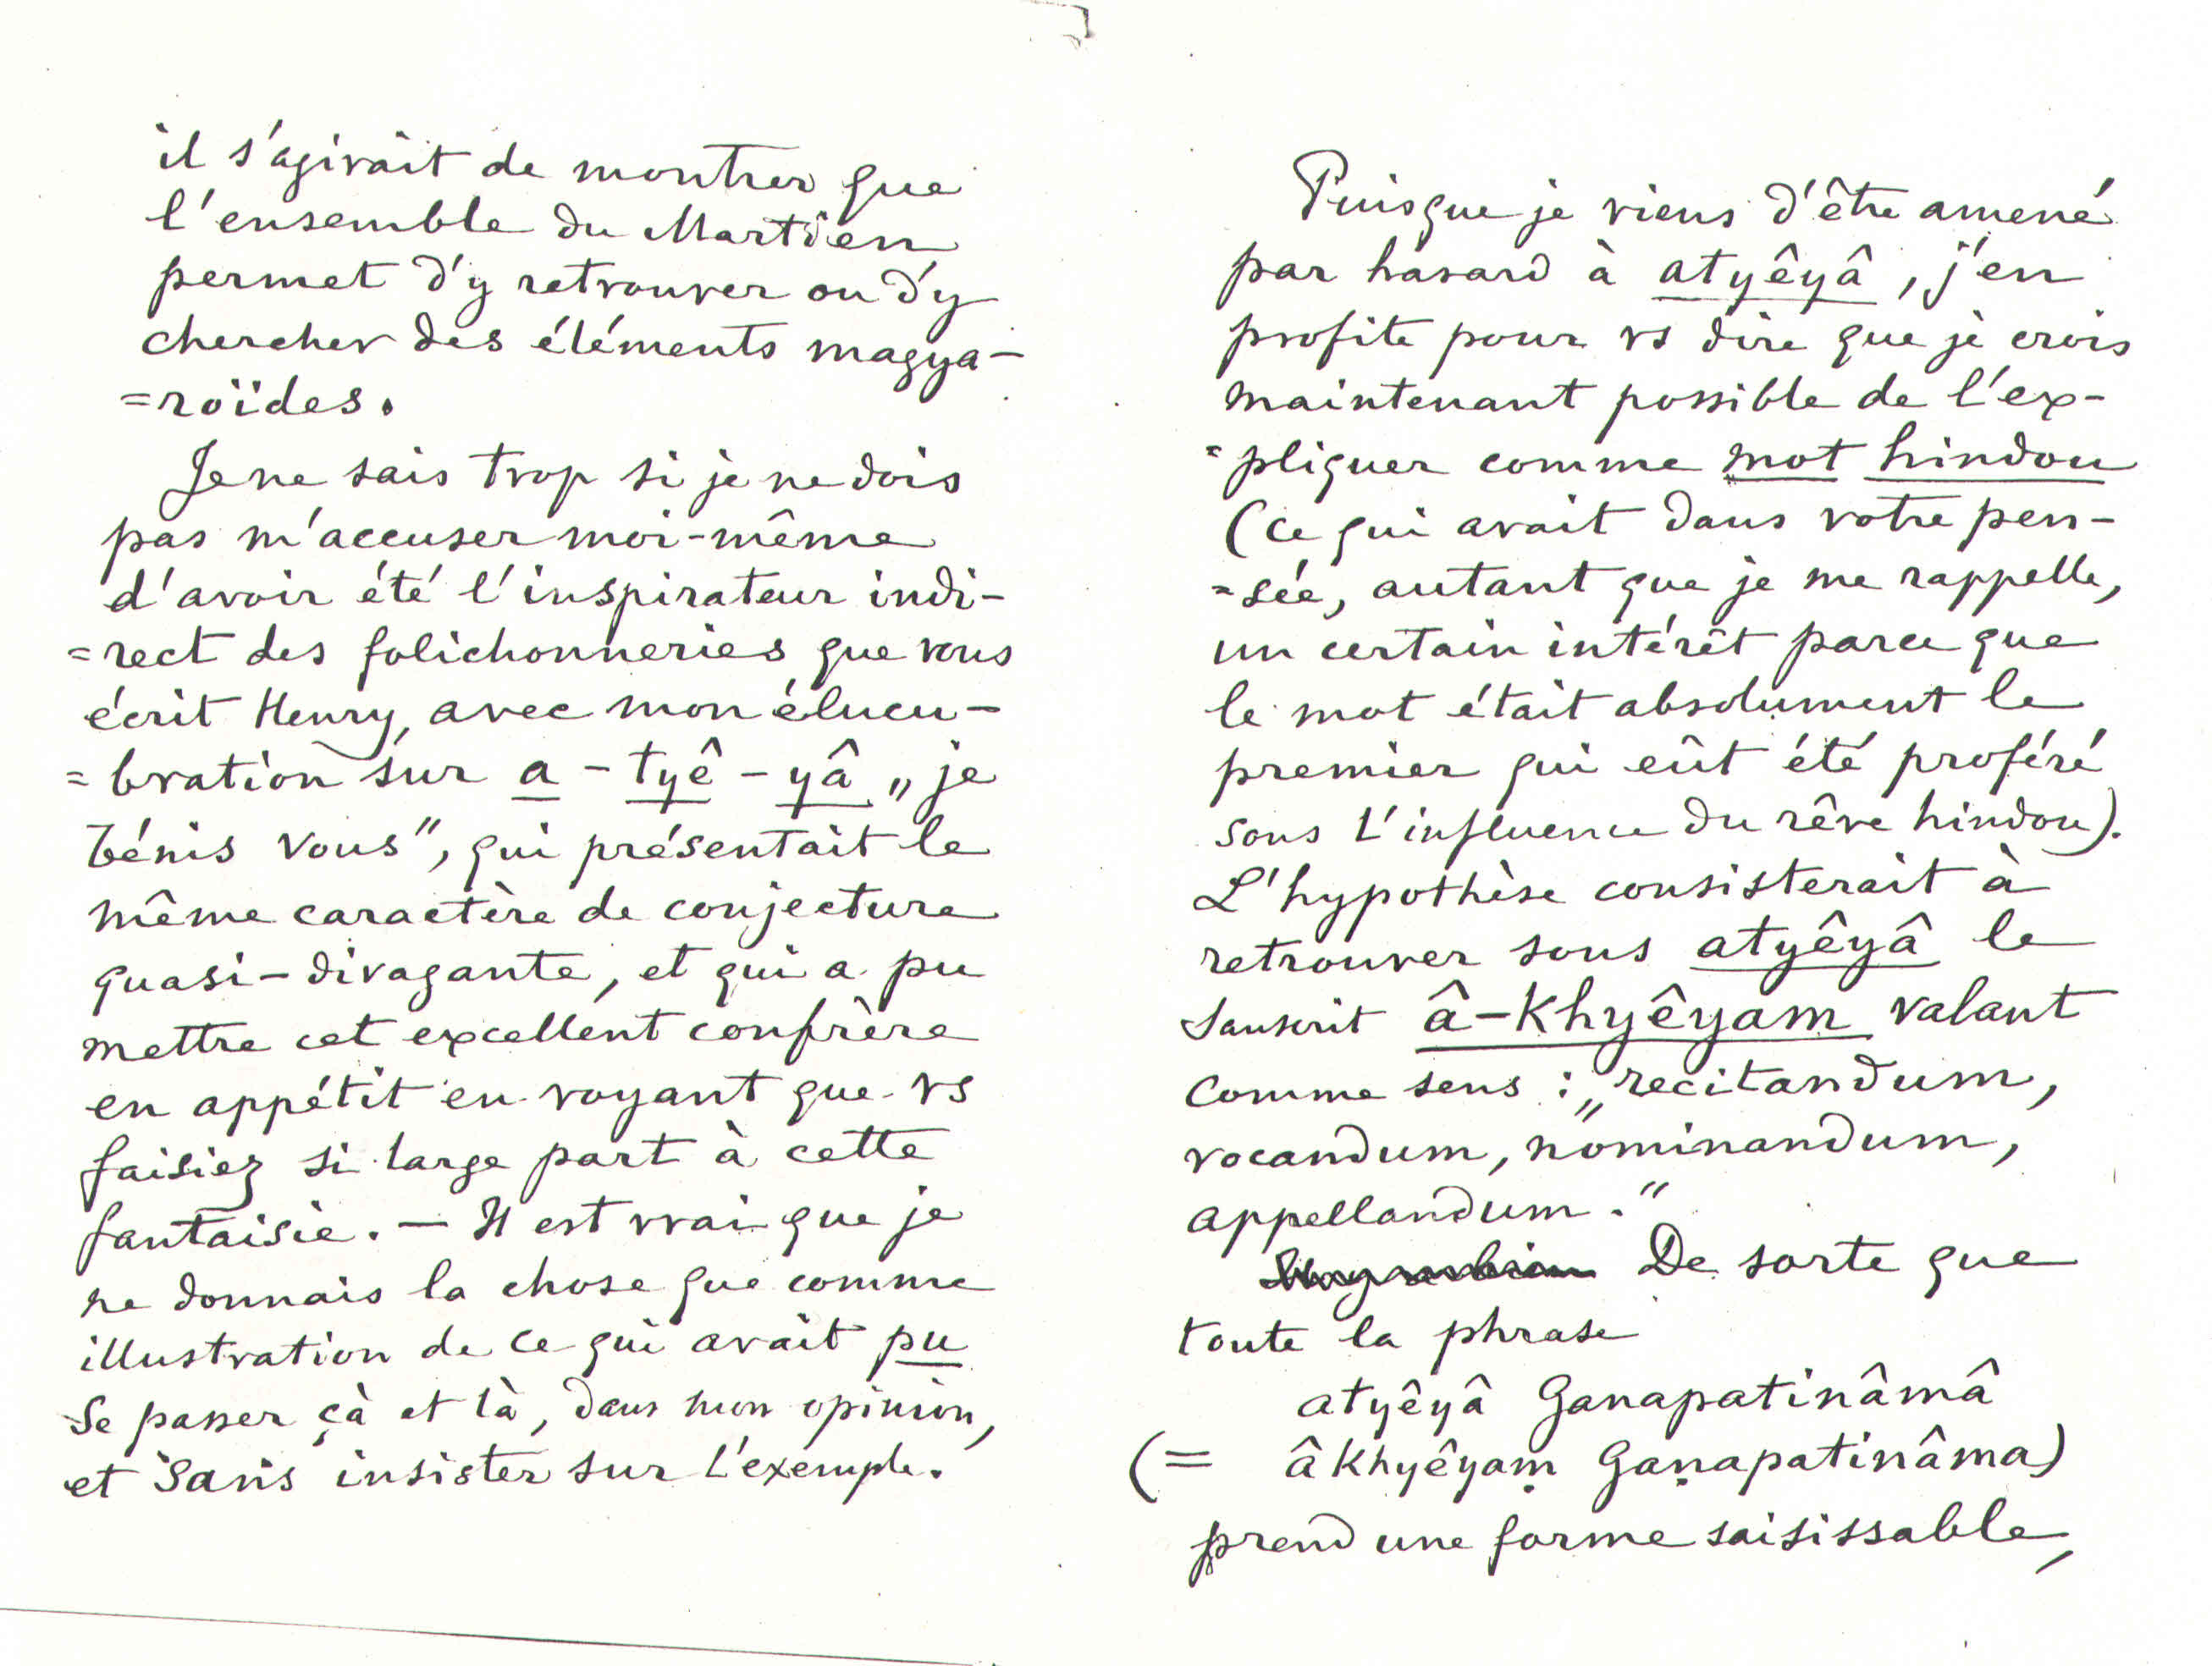 il s'agirait de montrer que
l'ensemble du Martien
permet d'y retrouver ou d'y
chercher des éléments magya-
=roïdes.
Je ne sais trop si je ne dois
pas m'accuser moi-même
d'avoir été l'inspirateur indi-
=rect des folichonneries que vous
écrit Henry, avec mon élucu-
=bration sur a - tyê - yâ „je
bénis vous", qui présentait le
même caractère de conjecture
quasi-divagante, et qui a pu
mettre cet excellent confrère
en appétit en voyant que vs
faisiez si large part à cette
fantaisie. — Il est vrai que je
ne donnais la chose que comme
illustration de ce qui avait pu
se passer çà et là, dans mon opinion,
et sans insister sur l'exemple.
Puisque je viens d'être amené
par hasard à atyêyâ, j'en
profite pour vs dire que je crois
maintenant possible de l'ex-
=pliquer comme mot hindou
(ce qui avait dans votre pen-
=sée, autant que je me rappelle,
un certain intérêt parce que
le mot était absolument le
premier qui eût été proféré
sous l'influence du rêve hindou).
L'hypothèse consisterait à
retrouver sous atyêyâ le
sanscrit â-khyêyam valant
comme sens : „recitandum,
vocandum, nominandum,
appellandum."
De sorte que
toute la phrase
atyêyâ Ganapatinâmâ
(= âkhyêyaṃ Gaṇapatinâma)
prend une forme saisissable,